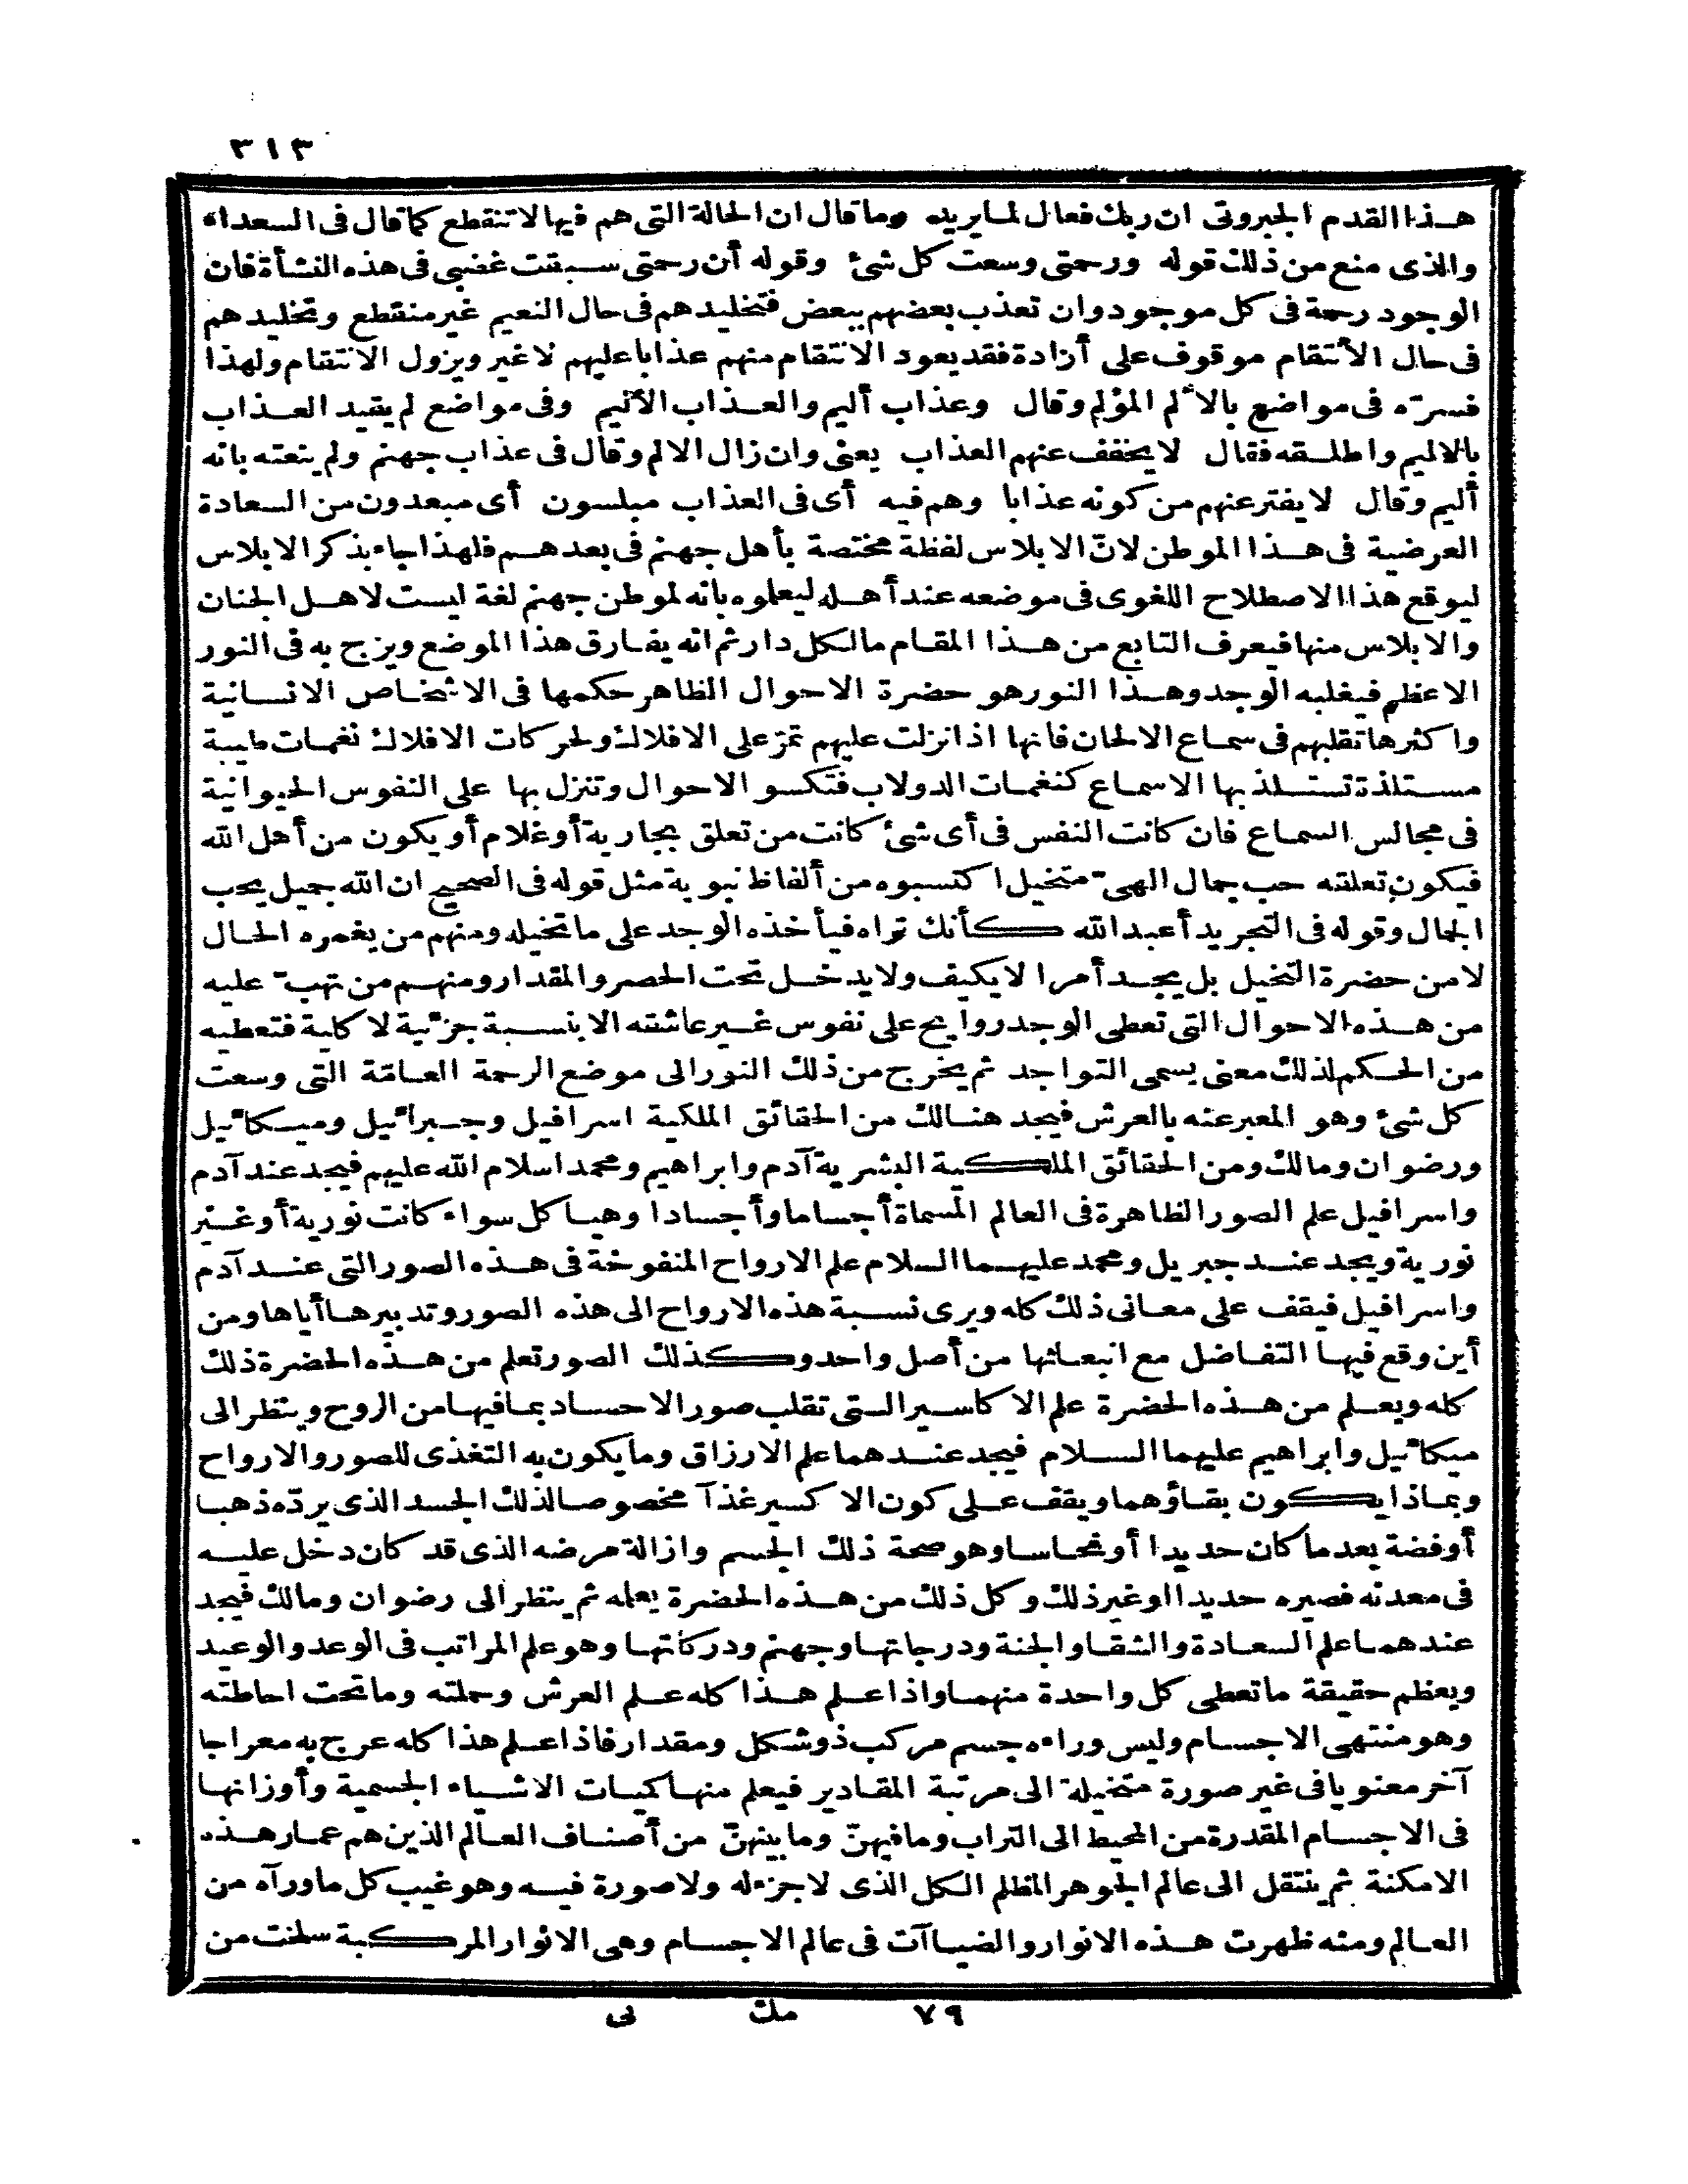 ٣١٣
هذا القدم الجبروتى ان ربك فعال لما يريد وما قال ان الحالة التى هم فيها لا تنقطع كما قال فى السعداء
والذى منع من ذلك قوله ورحمتى وسعت كل شئ وقوله أن رحمتى سبقت غضبى فى هذه النشأة فان
الوجود رحمة فى كل موجود وان تعذب بعضهم ببعض فتخليدهم فى حال النعيم غير منقطع وتخليدهم
فى حال الأنتقام موقوف على أرادة فقد يعود الانتقام منهم عذابا عليهم لا غير ويزول الانتقام ولهذا
فسره فى مواضع بالالم المؤلم وقال وعذاب أليم والعذاب الأليم وفى مواضع لم يقيد العذاب
بالاليم واطلقه فقال لا يخفف عنهم العذاب يعنى وان زال الالم وقال فى عذاب جهنم ولم ينعته بانه
أليم وقال لا يفتر عنهم من كونه عذابا وهم فيه أى فى العذاب مبلسون أى مبعدون من السعادة
العرضية فى هذا الموطن لانّ الابلاس لفظة مختصة بأهل جهنم فى بعدهم فلهذا جاء بذكر الابلاس
ليوقع هذا الاصطلاح اللغوى فى موضعه عند أهله ليعلموه بانه لموطن جهنم لغة ليست لاهل الجنان
والابلاس منها فيعرف التابع من هذا المقام ما لكل دار ثم انه يفارق هذا الموضع ويزج به فى النور
الاعظم فيغلبه الوجد وهذا النور هو حضرة الاحوال الظاهر حكمها فى الاشخاص الانسانية
واكثرها تقلبهم فى سماع الالحان فانها اذا نزلت عليهم تمرّ على الافلاك ولحركات الافلاك نغمات طيبة
مستلذة تستلذ بها الاسماع كنغمات الدولاب فتكسو الاحوال وتنزل بها على النفوس الحيوانية
فى مجالس السماع فان كانت النفس فى أى شئ كانت من تعلق بجارية أو غلام أو يكون من أهل الله
فيكون تعلقه حب جمال الهىّ متخيل اكتسبوه من ألفاظ نبوية مثل قوله فى الصحيح ان الله جميل يحب
الجمال وقوله فى التجريد أعبد الله كأنك تراه فيأخذه الوجد على ما تخيله ومنهم من يغمره الحال
لا من حضرة التخيل بل يجد أمرا لا يكيف ولا يدخل تحت الحصر والمقدار ومنهم من تهبّ عليه
من هذه الاحوال التى تعطى الوجد روايح على نفوس غير عاشقه الا بنسبة جزئية لا كلية فتعطيه
من الحكم لذلك معنى يسمى التواجد ثم يخرج من ذلك النور الى موضع الرحمة العامّة التى وسعت
كل شئ وهو المعبر عنه بالعرش فيجد هنالك من الحقائق الملكية اسرافيل وجبرائيل وميكائيل
ورضوان ومالك ومن الحقائق الملكية البشرية آدم وابراهيم ومحمد اسلام الله عليهم فيجد عند آدم
واسرافيل علم الصور الظاهرة فى العالم المسماة أجساما وأجسادا وهياكل سواء كانت نورية أو غير
نورية ويجد عند جبريل ومحمد عليهما السلام علم الارواح المنفوخة فى هذه الصور التى عند آدم
واسرافيل فيقف على معانى ذلك كله ويرى نسبة هذه الارواح الى هذه الصور وتدبيرها أياها ومن
أين وقع فيها التفاضل مع انبعاثها من أصل واحد وكذلك الصور تعلم من هذه الحضرة ذلك
كله ويعلم من هذه الحضرة علم الاكاسير التى تقلب صور الاجساد بما فيها من الروح وينظر الى
ميكائيل وابراهيم عليهما السلام فيجد عندهما علم الارزاق وما يكون به التغذى للصور والارواح
وبماذا يكون بقاؤهما ويقف على كون الاكسير غذآ مخصوصا لذلك الجسد الذى يردّه ذهبا
أو فضة بعد ما كان حديدا أو نحاسا وهو صحة ذلك الجسم وازالة مرضه الذى قد كان دخل عليه
فى معدنه فصيره حديدا او غير ذلك وكل ذلك من هذه الحضرة يعلمه ثم ينظر الى رضوان ومالك فيجد
عندهما علم السعادة والشقا والجنة ودرجاتها وجهنم ودركاتها وهو علم المراتب فى الوعد والوعيد
ويعظم حقيقة ما تعطى كل واحدة منهما واذا علم هذا كله علم العرش وحملته وما تحت احاطته
وهو منتهى الاجسام وليس وراءه جسم مركب ذو شكل ومقدار فاذا علم هذا كله عرج به معراجا
آخر معنويا فى غير صورة متخيلة الى مرتبة المقادير فيعلم منها كميات الاشياء الجسمية وأوزانها
فى الاجسام المقدرة من المحيط الى التراب وما فيهنّ وما بينهنّ من أصناف العالم الذين هم عمار هذه
الامكنة ثم ينتقل الى عالم الجوهر المظلم الكل الذى لا جزء له ولا صورة فيه وهو غيب كل ما ورآه من
العالم ومنه ظهرت هذه الانوار والضياآت فى عالم الاجسام وهى الانوار المركبة سلخت من
٧٩ مك نى